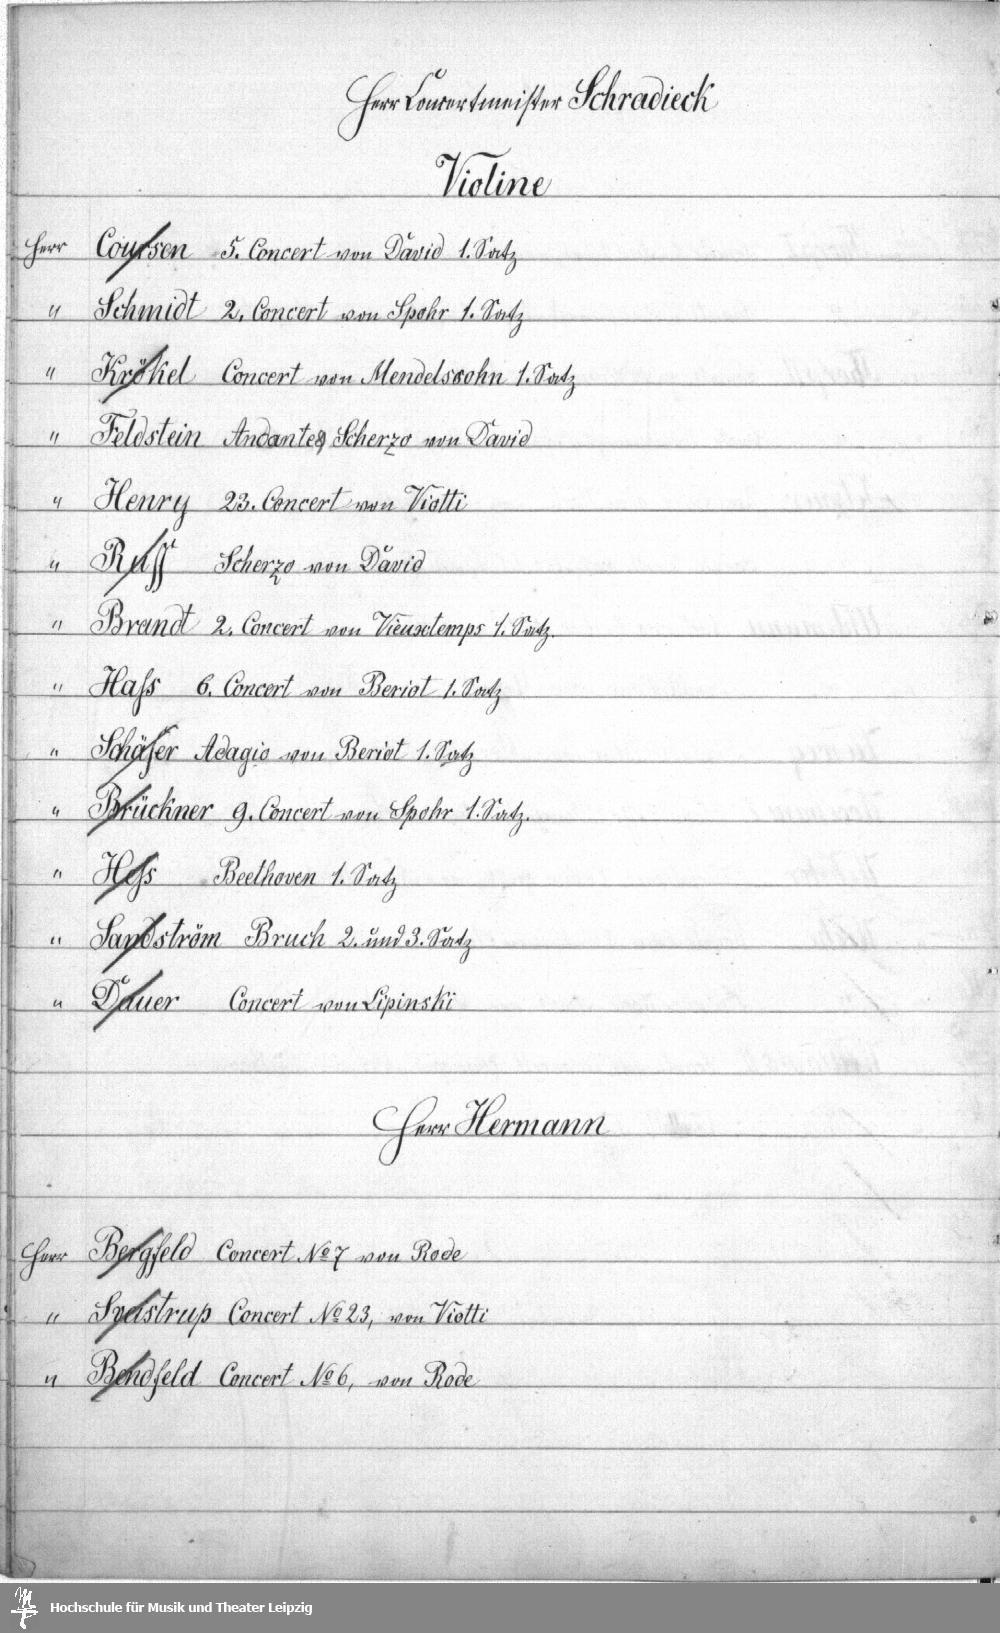 Herr Concertmeister Schradieck
Violine
Herr Coursen 5. Concert von David 1. Satz
" Schmidt 2. Concert von Spohr 1. Satz
" Krökel Concert von Mendelssohn 1. Satz
" Feldstein Andante & Scherzo von David
" Henry 23. Concert von Viotti
" Ruff Scherzo von David
" Brandt 2. Concert von Vieuxtemps 1. Satz.
" Haſs 6. Concert von Beriot 1. Satz
" Schäfer Adagio von Beriot 1. Satz
" Brückner 9. Concert von Spohr 1. Satz.
" Heſs Beethoven 1. Satz
" Sandström Bruch 2. und 3. Satz
" Dauer Concert von Lipinski
Herr Hermann
Herr Bergfeld Concert No 7 von Rode
" Svastrup Concert No 23, von Viotti
" Bendfeld Concert No 6, von Rode
Hochschule für Musik und Theater Leipzig